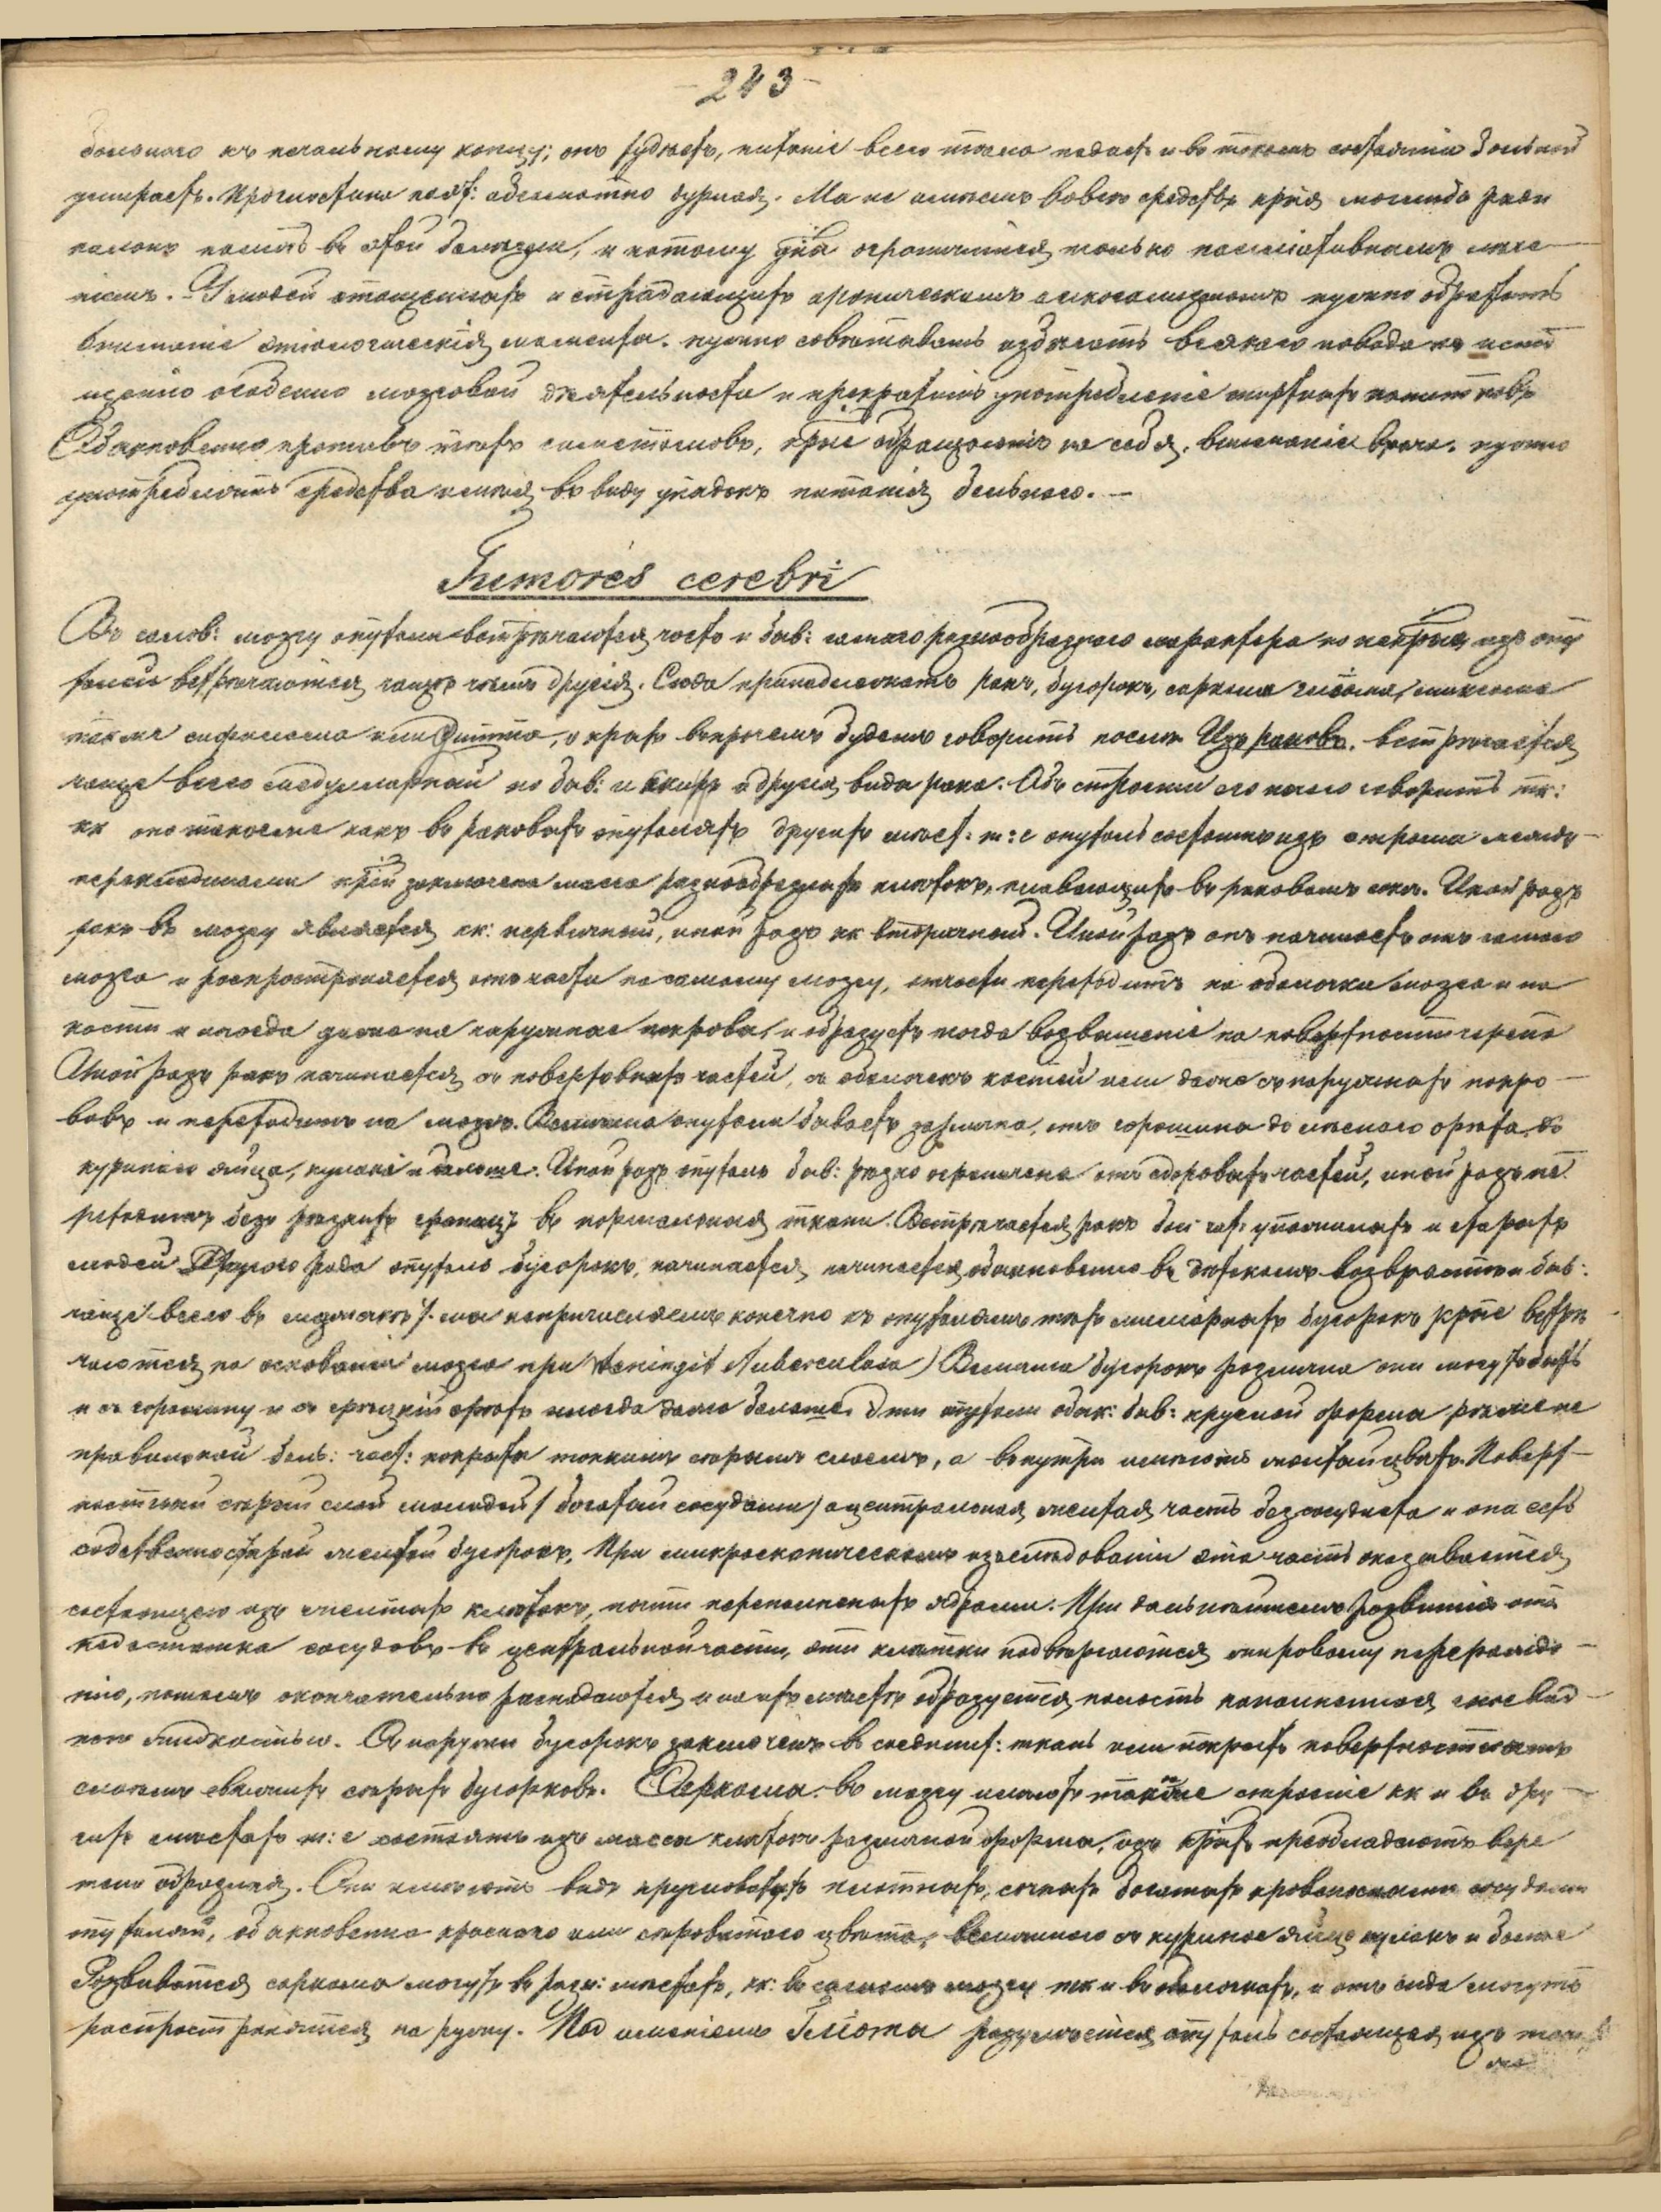 - 243 -
больного къ печальному концу; онъ худѣетъ, питаніе всего тѣла падаетъ и въ такомъ состояніи больной
умираетъ. Прогностика поэт: абсолютно дурная. Мы не имѣемъ вовсе средствъ крыя могли бъ
помочь въ этой болѣзни, и потому ограничимся только палліативнымъ лече-
ніемъ. У людей истощенныхъ и страдающихъ хроническимъ алкоголизмомъ нужно обратить
вниманіе этіологическія моменты. нужно совѣтовать избѣгать всякаго повода къ исто
щенію особенно мозговой дѣятельности и прекратить употребленіе спиртныхъ напитковъ
Обыкновенно противъ тѣхъ симптомовъ, крые обращаютъ на себя вниманіе врача. нужно
употреблять средства имѣя въ виду упадокъ питанія больного. -
Tumores cerebri
Въ голов: мозгу опухоли встрѣчаются часто и быв: самаго разнообразнаго характера но некрыя изъ опу
холей встрѣчаются чаще чѣмъ другія. Сюда принадлежатъ ракъ, бугорокъ, саркома гліома, миксома
также сифилома или Gumma, о крыхъ впрочемъ будемъ говорить послѣ. Изъ раковъ встрѣчается
чаще всего медуллярный но быв: и скиръ и другіе вида рака. Объ строеніи его нечего говорить тк:
кк оно такое же какъ въ раковыхъ опухоляхъ другихъ мѣст: т: е опухоль состоитъ изъ стромы между
перекладинами крой заключена масса разнообразныхъ клѣтокъ, плавающихъ въ раковомъ сокѣ. Иной разъ
ракъ въ мозгу является кк: первичный, иной разъ кк вторичный. Иной разъ онъ начинаетъ отъ самого
мозга и распространяется отчасти по самому мозгу, отчасти переходитъ на оболочки мозга и на
кости и иногда даже на наружные покровы, и образуетъ тогда возвышеніе на поверхности черепа
Иной разъ ракъ начинается съ поверхностныхъ частей, съ оболочекъ костей или даже съ наружныхъ покро-
вовъ и переходитъ на мозгъ. Величина опухоли бываетъ различна, отъ горошины до лѣсного орѣха, до
куринаго яйца, кулака и больше. Иной разъ опухоль быв: рѣзко ограничена отъ здоровыхъ частей, иной разъ пе
реходитъ безъ рѣзкихъ границъ въ нормальныя ткани. Встрѣчается ракъ бол: част: у пожилыхъ и старыхъ
людей. Другого рода опухоль бугорокъ, начинается, начинается обыкновенно въ дѣтскомъ возврастѣ и быв:
чаще всего въ мозжечкѣ (мы непричисляемъ конечно къ опухолямъ тѣхъ миліарныхъ бугорокъ крые встрѣ
чаются на основаніи мозга при Meningit tuberculosa) Величина бугорокъ различна они могутъ быть
и съ горошину и съ грецкій орѣхъ иногда даже больше. Эти опухоли обык: быв: круглой формы рѣже не
правильной боль: част: покрыты тонкимъ сѣрымъ слоемъ, а внутри имѣютъ желтый цвѣтъ. Поверх-
ностный сѣрый слой молодой (богатый сосудами) а центральная желтая часть безсосудиста и она есть
собственно старый желтый бугорокъ. При микроскопическомъ изслѣдованіи эта часть оказывается
состоящею изъ клѣтокъ, почти переполненныхъ ядрами. При дальнѣйшемъ развитіи отъ
недостатка сосудовъ въ центральной части, эти клѣтки подвергаются жировому перерожде-
нію, потомъ окончательно распадаются и на ихъ мѣстѣ образуется полость наполненная гноевид-
ною жидкостью. Снаружи бугорокъ заключенъ въ соединит: ткань или покрытъ поверхностнымъ
слоемъ свѣжихъ сѣрыхъ бугорковъ. Саркома въ мозгу имѣетъ такое же строеніе кк и въ дру-
гихъ мѣстахъ т: е состоятъ изъ массы клѣтокъ различной формы, изъ крыхъ преобладаютъ вере
тено образныя. Они имѣютъ видъ кругловатыхъ плотныхъ, сочныхъ богатыхъ кровеносными сосудами
опухолей, обыкновенно краснаго или сѣроватаго цвѣта, величиною съ куриное яйцо кулакъ и болѣе
Развиваться саркома могутъ въ разн: мѣстахъ, кк: въ самомъ мозгу тк и въ оболочкахъ, и отъ сюда могутъ
распространяться на ружу. Подъ именіемъ Гліома разумѣется опухоль состоящая изъ